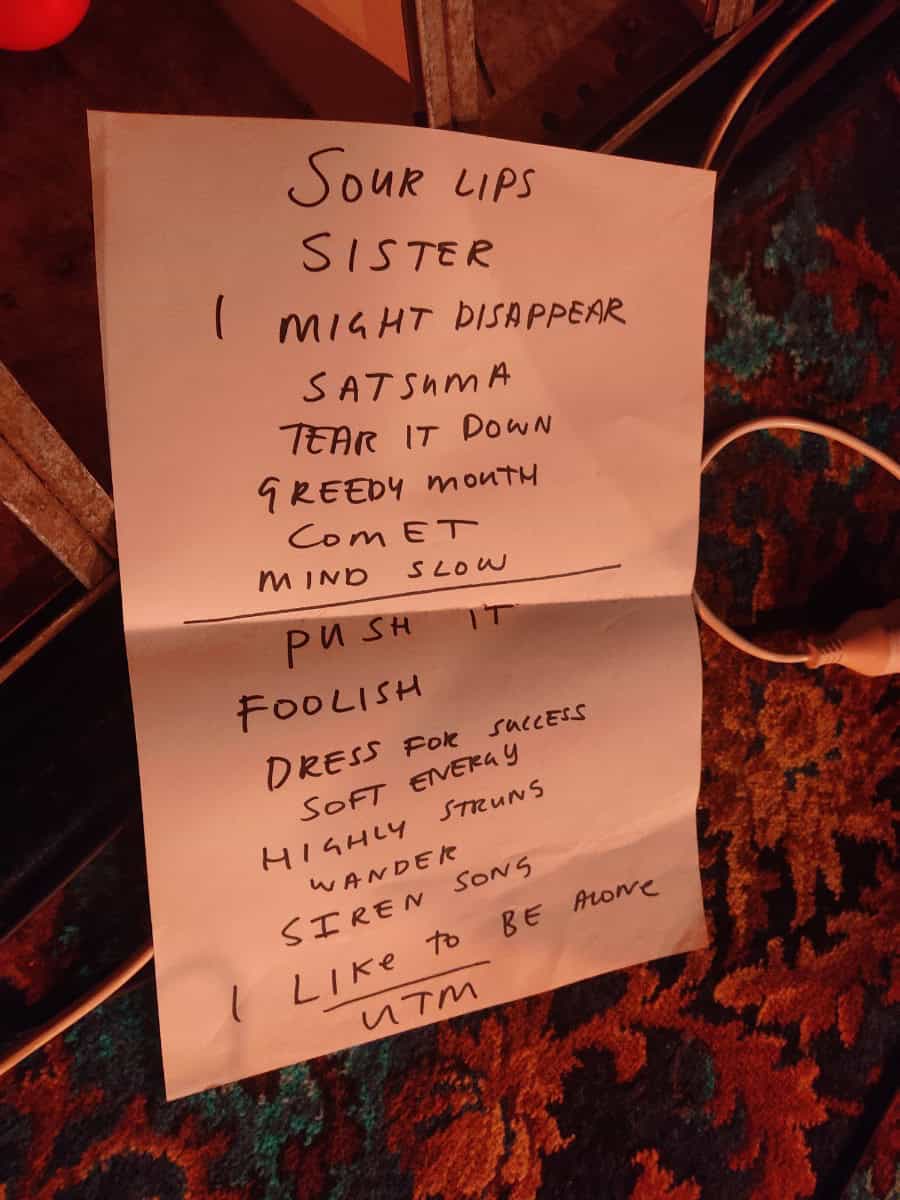 SOUR LIPS
SISTER
I MIGHT DISAPPEAR
SATSUMA
TEAR IT DOWN
GREEDY MOUTH
COMET
MIND SLOW
PUSH IT
FOOLISH
DRESS FOR SUCCESS
SOFT ENERGY
HIGHLY STRUNG
WANDER
SIREN SONG
I LIKE TO BE ALONE
UTM